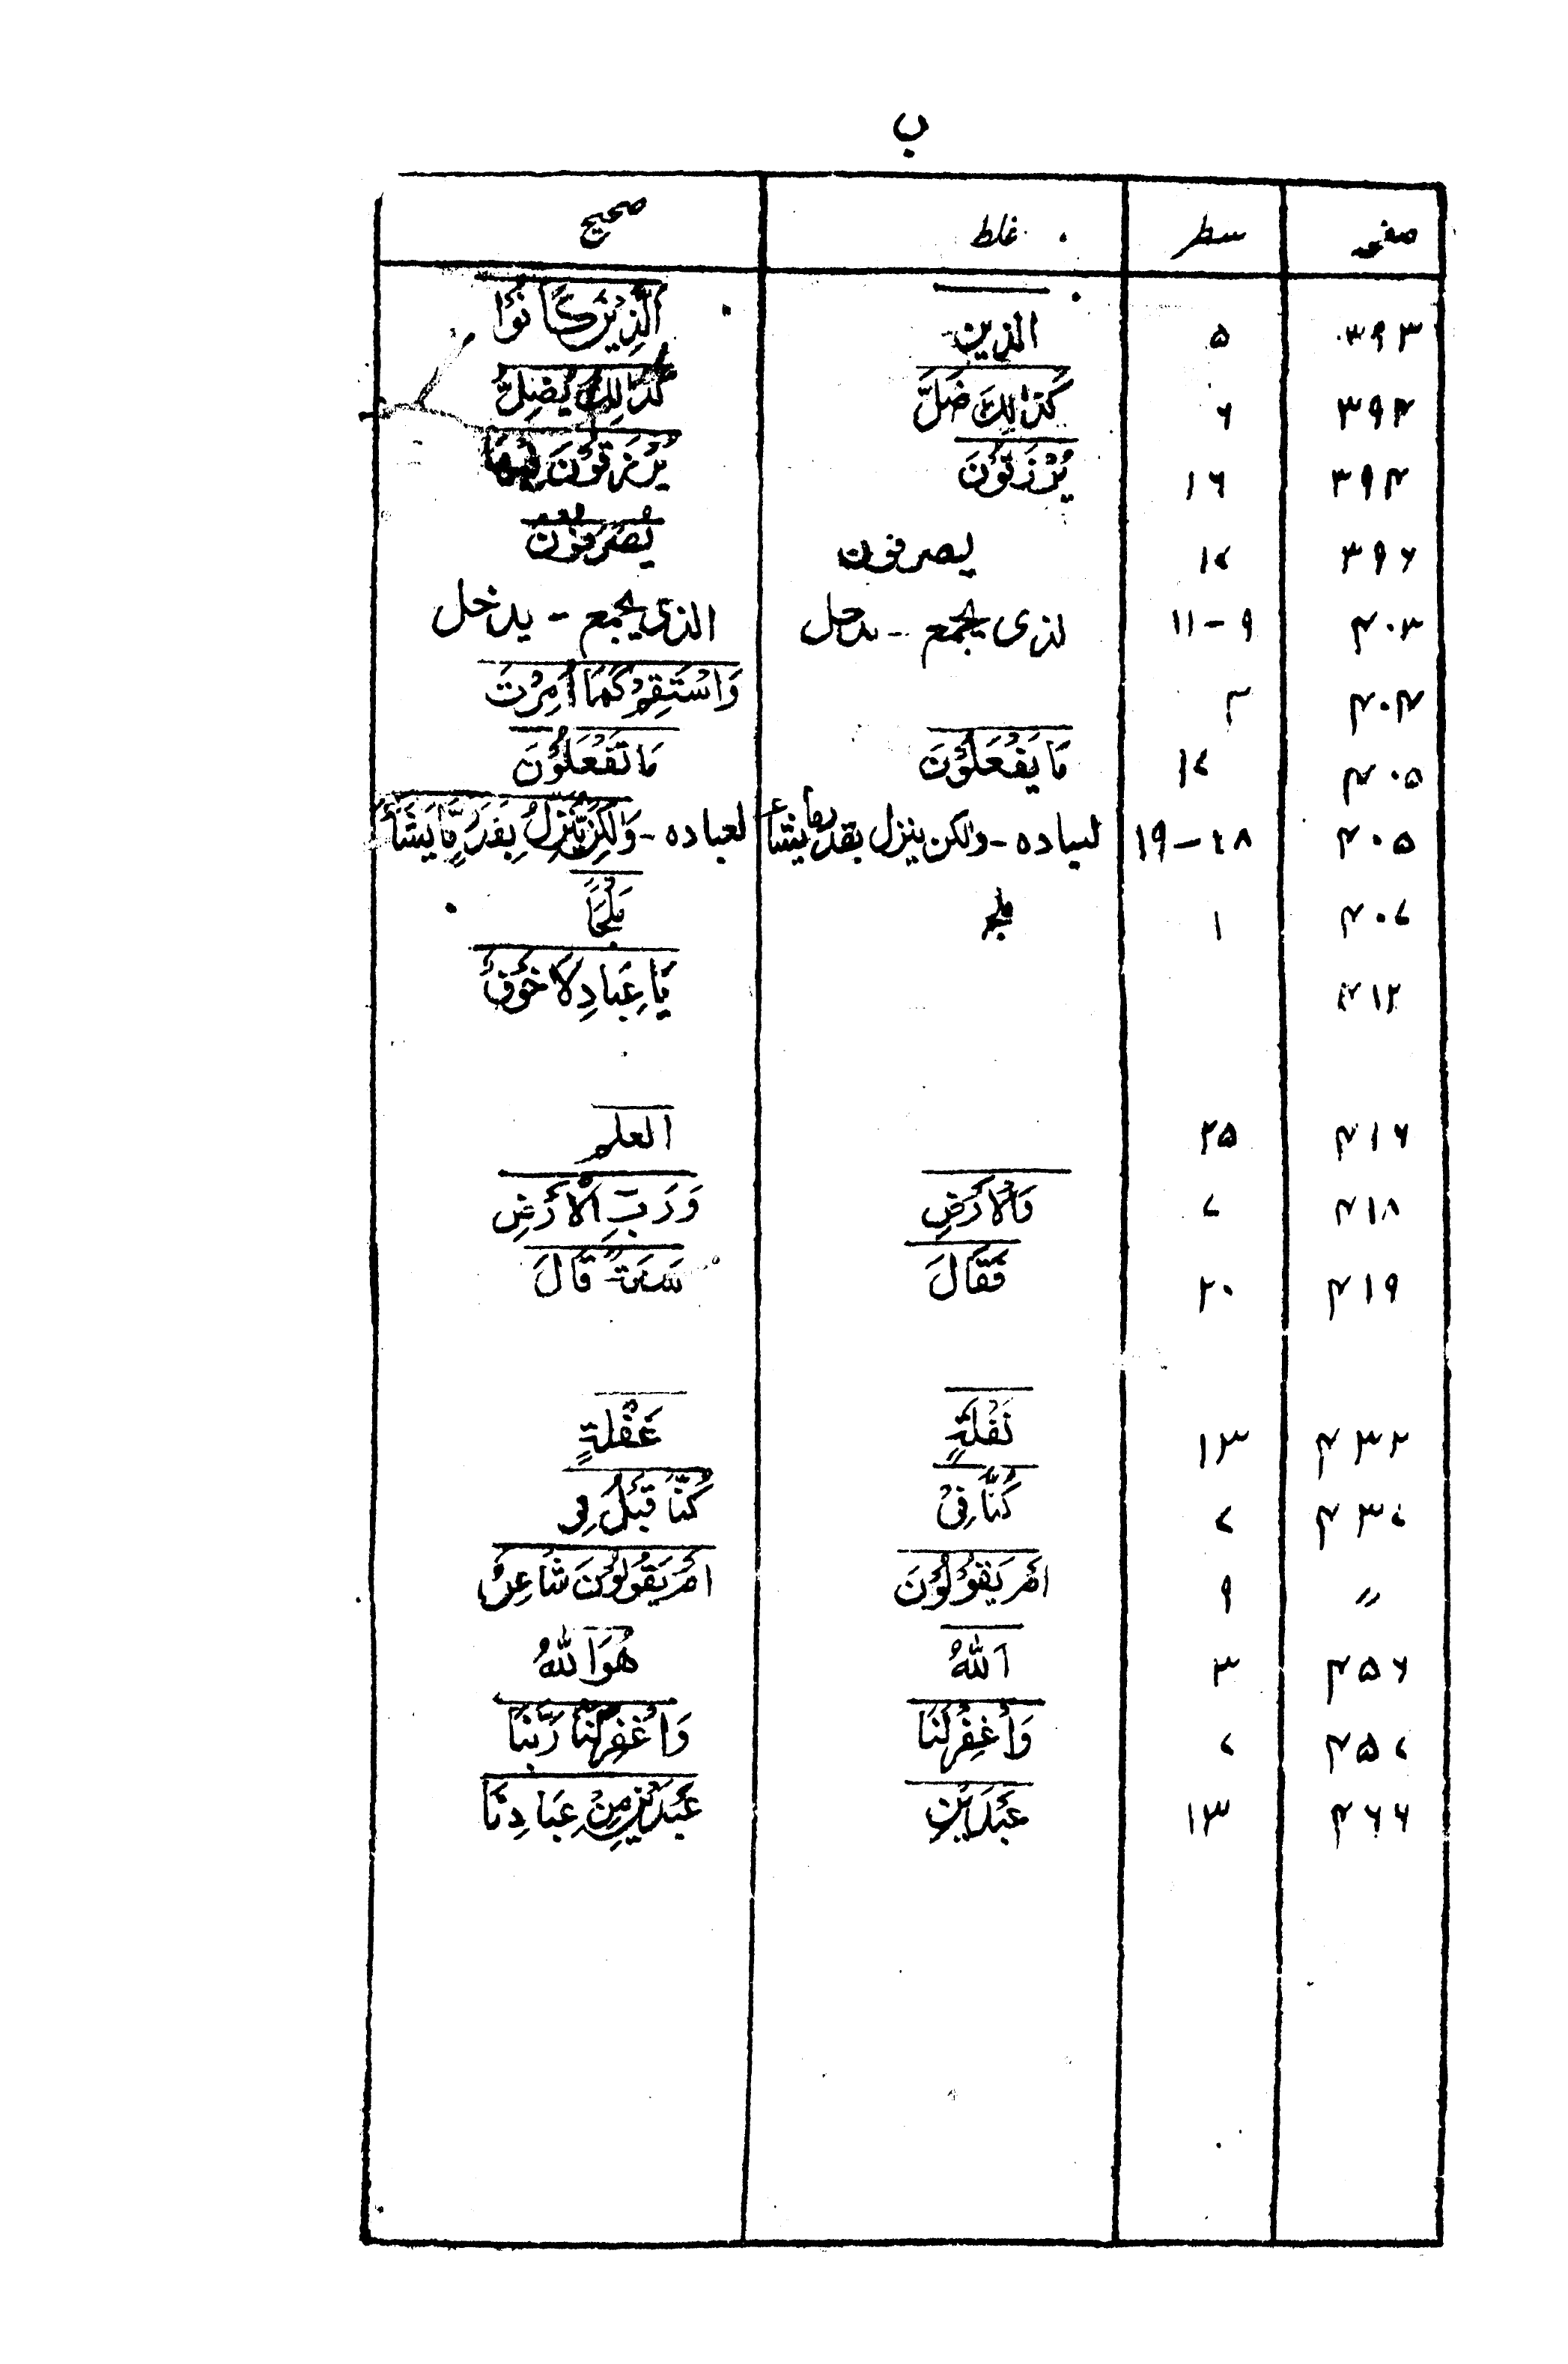 ب
صفحہ سطر غلط صحیح
۳۹۳ ۵ الذین الَّذِیْنَ کَانُوْا
۳۹۴ ۶ کَذَالِکَ ضَلَّ کَذَالِکَ یُضِلُّ
۳۹۴ ۱۶ یُرْزَقُوْنَ یُرْزَقُوْنَ فِیْهَا
۳۹۶ ۱۷ یصرفون یُصْرَفُوْنَ
۴۰۳ ۹-۱۱ لذی یجمع - یدخل الذی یجمع - یدخل
۴۰۴ ۳ وَاسْتَقِمْ کَمَا اُمِرْتَ
۴۰۵ ۱۷ مَا یَفْعَلُوْنَ مَا تَفْعَلُوْنَ
۴۰۵ ۱۸-۱۹ لبباده - ولکن ینزل بقدر ما یشاء لعباده - وَلٰکِنْ یُّنَزِّلُ بِقَدَرٍ مَّا یَشَآءُ
۴۰۷ ۱
۴۱۲ یَا عِبَادِ لَا خَوْفٌ
۴۱۶ ۲۵ العلم
۴۱۸ ۷ وَالْاَرْضِ وَرَبِّ الْاَرْضِ
۴۱۹ ۲۰ فَقَالَ سَنَةً قَالَ
۴۳۲ ۱۳ نَفْلَةٍ غَفْلَةٍ
۴۳۷ ۷ کُنَّا فِیْ کُنَّا قَبْلُ فِی
〃 ۹ اَمْ یَقُوْلُوْنَ اَمْ یَقُوْلُوْنَ شَاعِرٌ
۴۵۶ ۳ اَللّٰهُ هُوَ اللّٰهُ
۴۵۷ ۷ وَاغْفِرْ لَنَا وَاغْفِرْ لَنَا رَبَّنَا
۴۶۶ ۱۳ عَبْدَیْنِ عَبْدَیْنِ مِنْ عِبَادِنَا